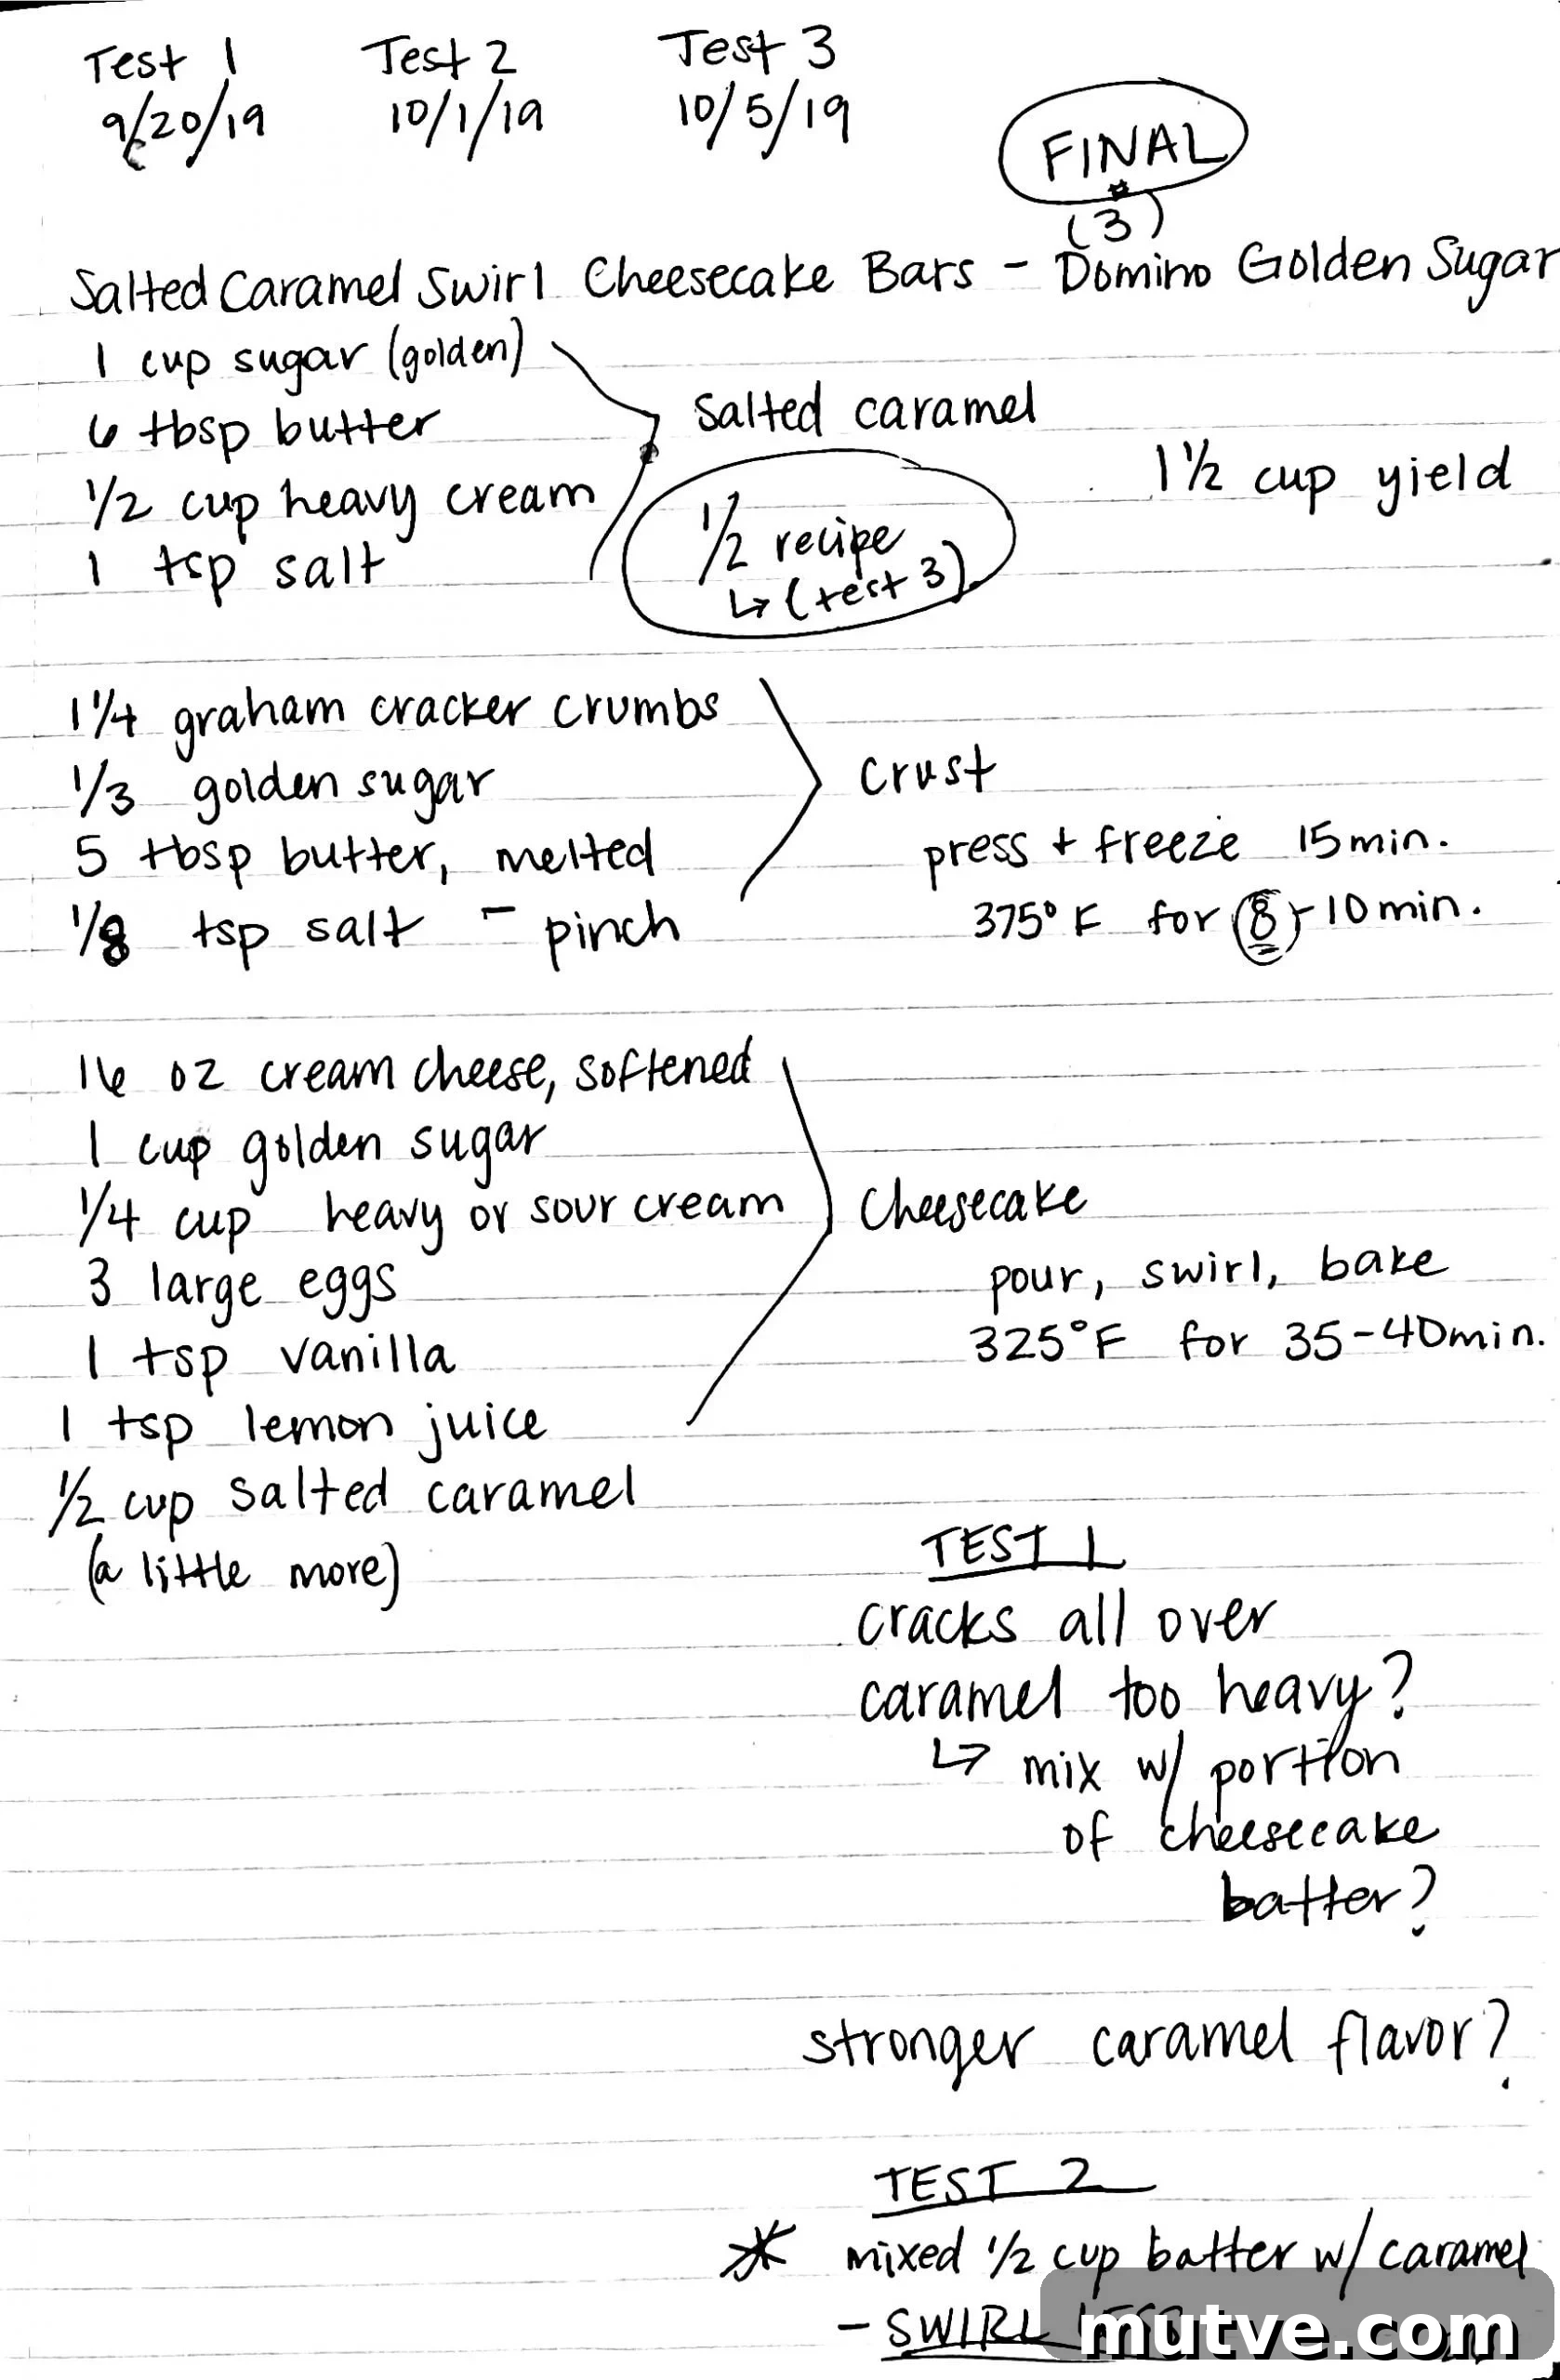 Test 1 Test 2 Test 3
9/20/19 10/1/19 10/5/19
FINAL
(3)
Salted Caramel Swirl Cheesecake Bars - Domino Golden Sugar
1 cup sugar (golden)
6 tbsp butter
1/2 cup heavy cream
1 tsp salt
Salted caramel
1 1/2 cup yield
1/2 recipe
↳ (test 3)
1 1/4 graham cracker crumbs
1/3 golden sugar
5 tbsp butter, melted
1/8 tsp salt - pinch
Crust
press + freeze 15 min.
375° F for 8-10 min.
16 oz cream cheese, softened
1 cup golden sugar
1/4 cup heavy or sour cream
3 large eggs
1 tsp vanilla
1 tsp lemon juice
1/2 cup salted caramel
(a little more)
Cheesecake
pour, swirl, bake
325°F for 35-40 min.
TEST 1
cracks all over
caramel too heavy?
↳ mix w/ portion
of cheesecake
batter?
stronger caramel flavor?
TEST 2
* mixed 1/2 cup batter w/ caramel
- SWIRL
mutve.com